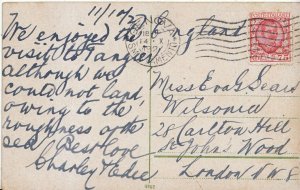 11/10/2
England
We enjoyed the
visit to Tangier
although we
could not land,
owing to the
roughness of the
sea. Best love
Charley & Edie
Miss Eva G. Sears
Wilsonia
28 Carlton Hill
St Johns Wood
London N W 8